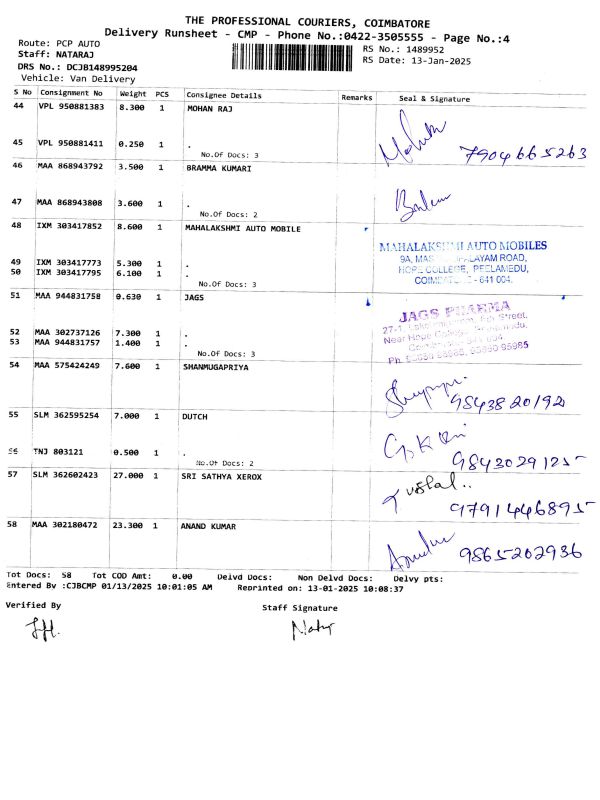 THE PROFESSIONAL COURIERS, COIMBATORE
Delivery Runsheet - CMP - Phone No.:0422-3505555 - Page No.:4
Route: PCP AUTO
RS No.: 1489952
Staff: NATARAJ
RS Date: 13-Jan-2025
DRS No.: DCJB148995204
Vehicle: Van Delivery
S No Consignment No Weight PCS Consignee Details Remarks Seal & Signature
44 VPL 950881383 8.300 1 MOHAN RAJ
45 VPL 950881411 0.250 1 .
7904665263
No.Of Docs: 3
46 MAA 868943792 3.500 1 BRAMMA KUMARI
47 MAA 868943808 3.600 1 .
No.Of Docs: 2
48 IXM 303417852 8.600 1 MAHALAKSHMI AUTO MOBILE
MAHALAKSHMI AUTO MOBILES
49 IXM 303417773 5.300 1 .
50 IXM 303417795 6.100 1 .
HOPE COLLEGE, PEELAMEDU,
COIMBATORE - 641 004.
No.Of Docs: 3
51 MAA 944831758 0.630 1 JAGS
JAGS PHARMA
52 MAA 302737126 7.300 1 .
53 MAA 944831757 1.400 1 .
No.Of Docs: 3
54 MAA 575424249 7.600 1 SHANMUGAPRIYA
9843820192
55 SLM 362595254 7.000 1 DUTCH
56 TNJ 803121 0.500 1 .
No.Of Docs: 2
9843029125
57 SLM 362602423 27.000 1 SRI SATHYA XEROX
9791446895
58 MAA 302180472 23.300 1 ANAND KUMAR
9865202936
Tot Docs: 58 Tot COD Amt: 0.00 Delvd Docs: Non Delvd Docs: Delvy pts:
Entered By :CJBCMP 01/13/2025 10:01:05 AM Reprinted on: 13-01-2025 10:08:37
Verified By
Staff Signature